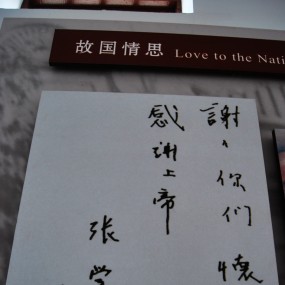 故国情思 Love to the Nati
謝々你们懷
感謝上帝
張学